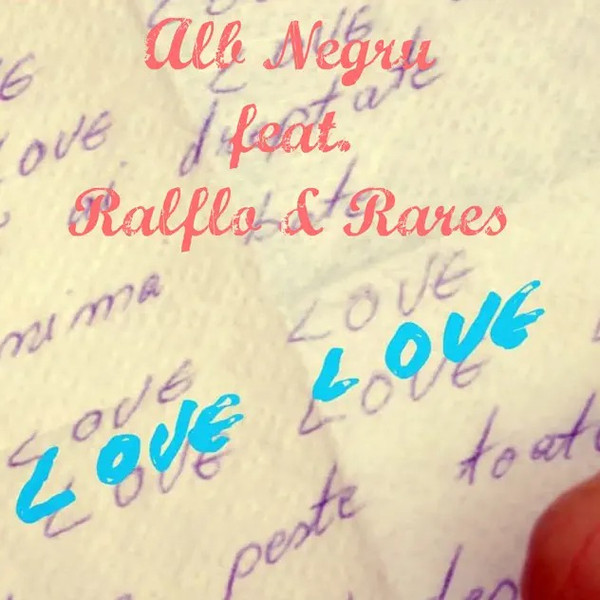 Alb Negru
LOVE
feat.
LOVE ai dreptate
Ralflo & Rares
inima
LOVE
LOVE LOVE
LOVE LOVE
LOVE
peste toate